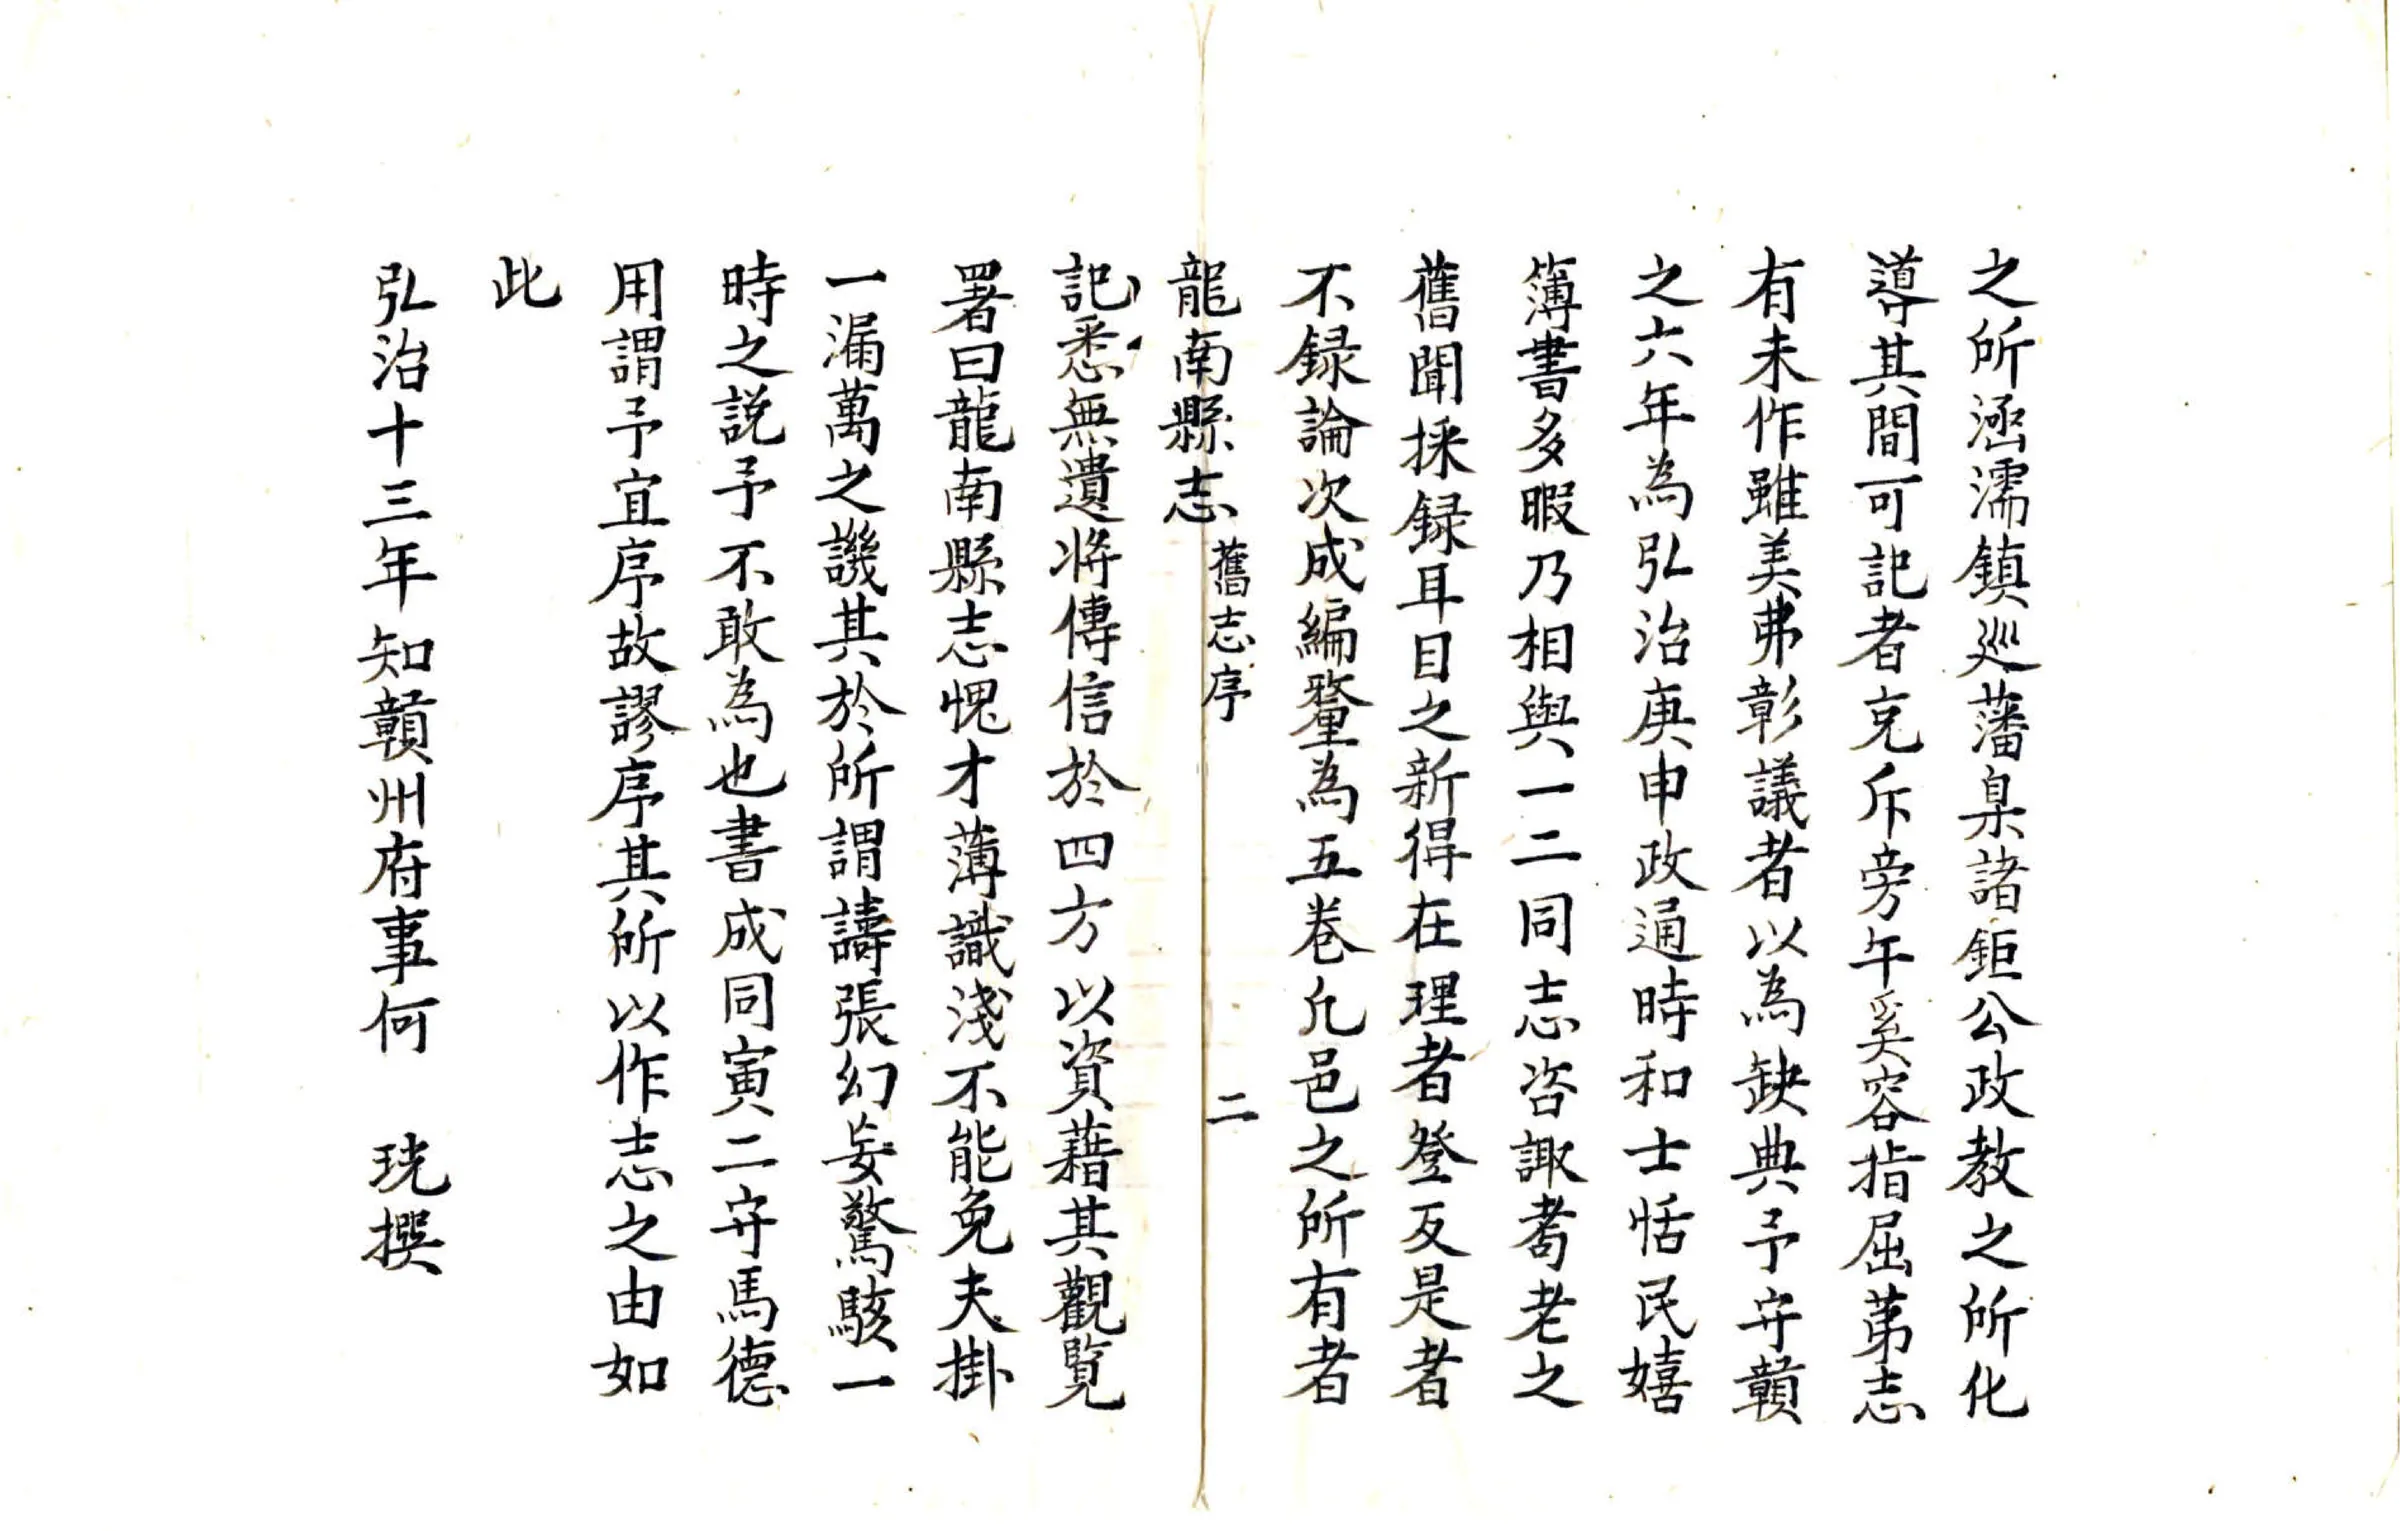 之所涵濡鎮巡藩臬諸鉅公政教之所化
導其間可記者充斥旁午奚容指屈苐志
有未作雖美弗彰議者以為缺典予守贛
之六年為弘治庚申政通時和士恬民嬉
簿書多暇乃相與一二同志咨諏耆老之
舊聞採録耳目之新得在理者登反是者
不録論次成編釐為五卷凢邑之所有者
龍南縣志 舊志序 二
記悉無遺將傳信於四方以資藉其觀覽
署曰龍南縣志愧才薄識淺不能免夫掛
一漏萬之譏其於所謂譸張幻妄驚駭一
時之説予不敢為也書成同寅二守馬德
用謂予宜序故謬序其所以作志之由如
此
弘治十三年知贛州府事何 珖撰